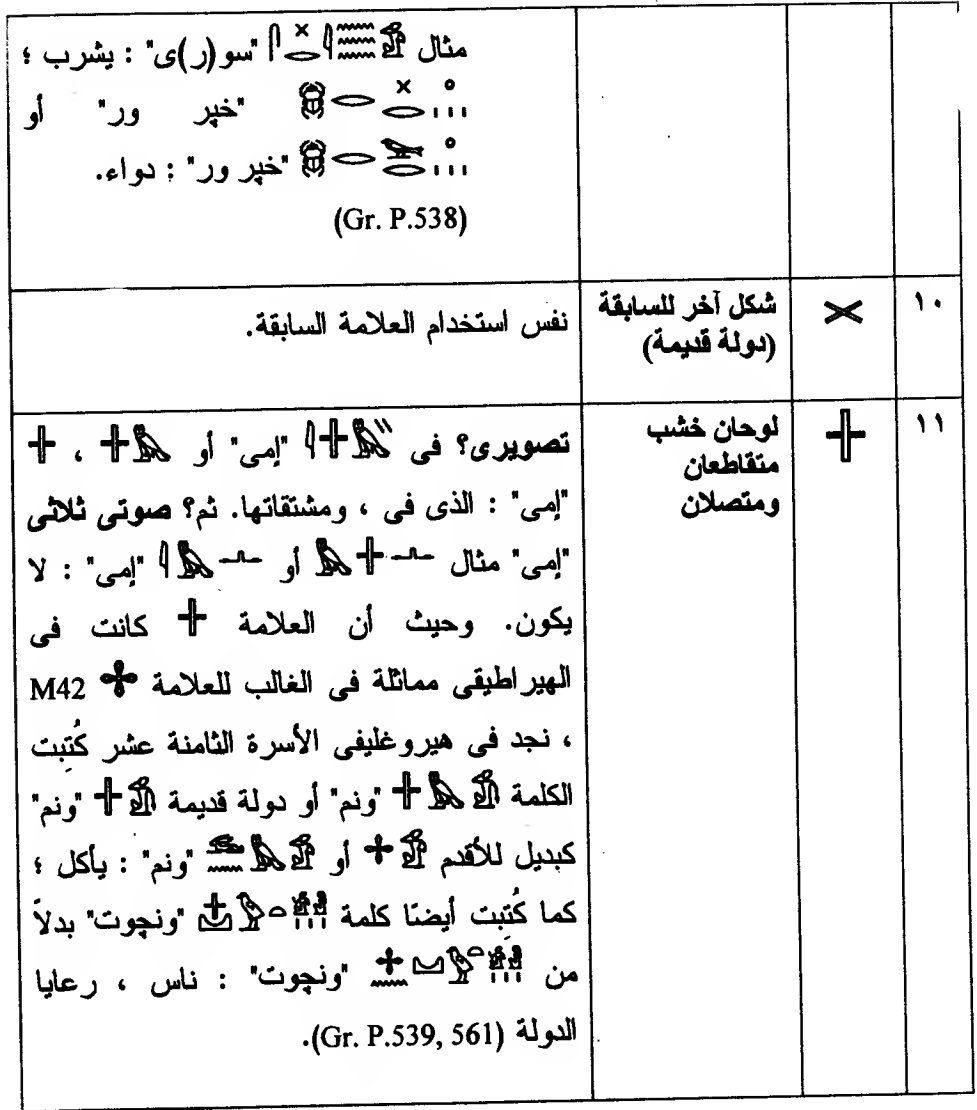 مثال "سو(ر)ى" : يشرب ؛
"خپر ور" أو
"خپر ور" : دواء.
(Gr. P.538)
١٠
شكل آخر للسابقة
(دولة قديمة)
نفس استخدام العلامة السابقة.
١١
𓏶
لوحان خشب
متقاطعان
ومتصلان
تصويرى؟ فى "إمى" أو 𓏶𓅓 ، 𓏶
"إمى" : الذى فى ، ومشتقاتها. ثم؟ صوتى ثلاثى
"إمى" مثال 𓂜𓏶𓅓 أو "إمى" : لا
يكون. وحيث أن العلامة 𓏶 كانت فى
الهيراطيقى مماثلة فى الغالب للعلامة 𓇬 M42
، نجد فى هيروغليفى الأسرة الثامنة عشر كُتِبت
الكلمة 𓏶𓅓𓀁 "ونم" أو دولة قديمة 𓏶𓀁 "ونم"
كبديل للأقدم 𓇬𓀁 أو "ونم" : يأكل ؛
كما كُتِبت أيضًا كلمة "ونچوت" بدلاً
من "ونچوت" : ناس ، رعايا
الدولة (Gr. P.539, 561).